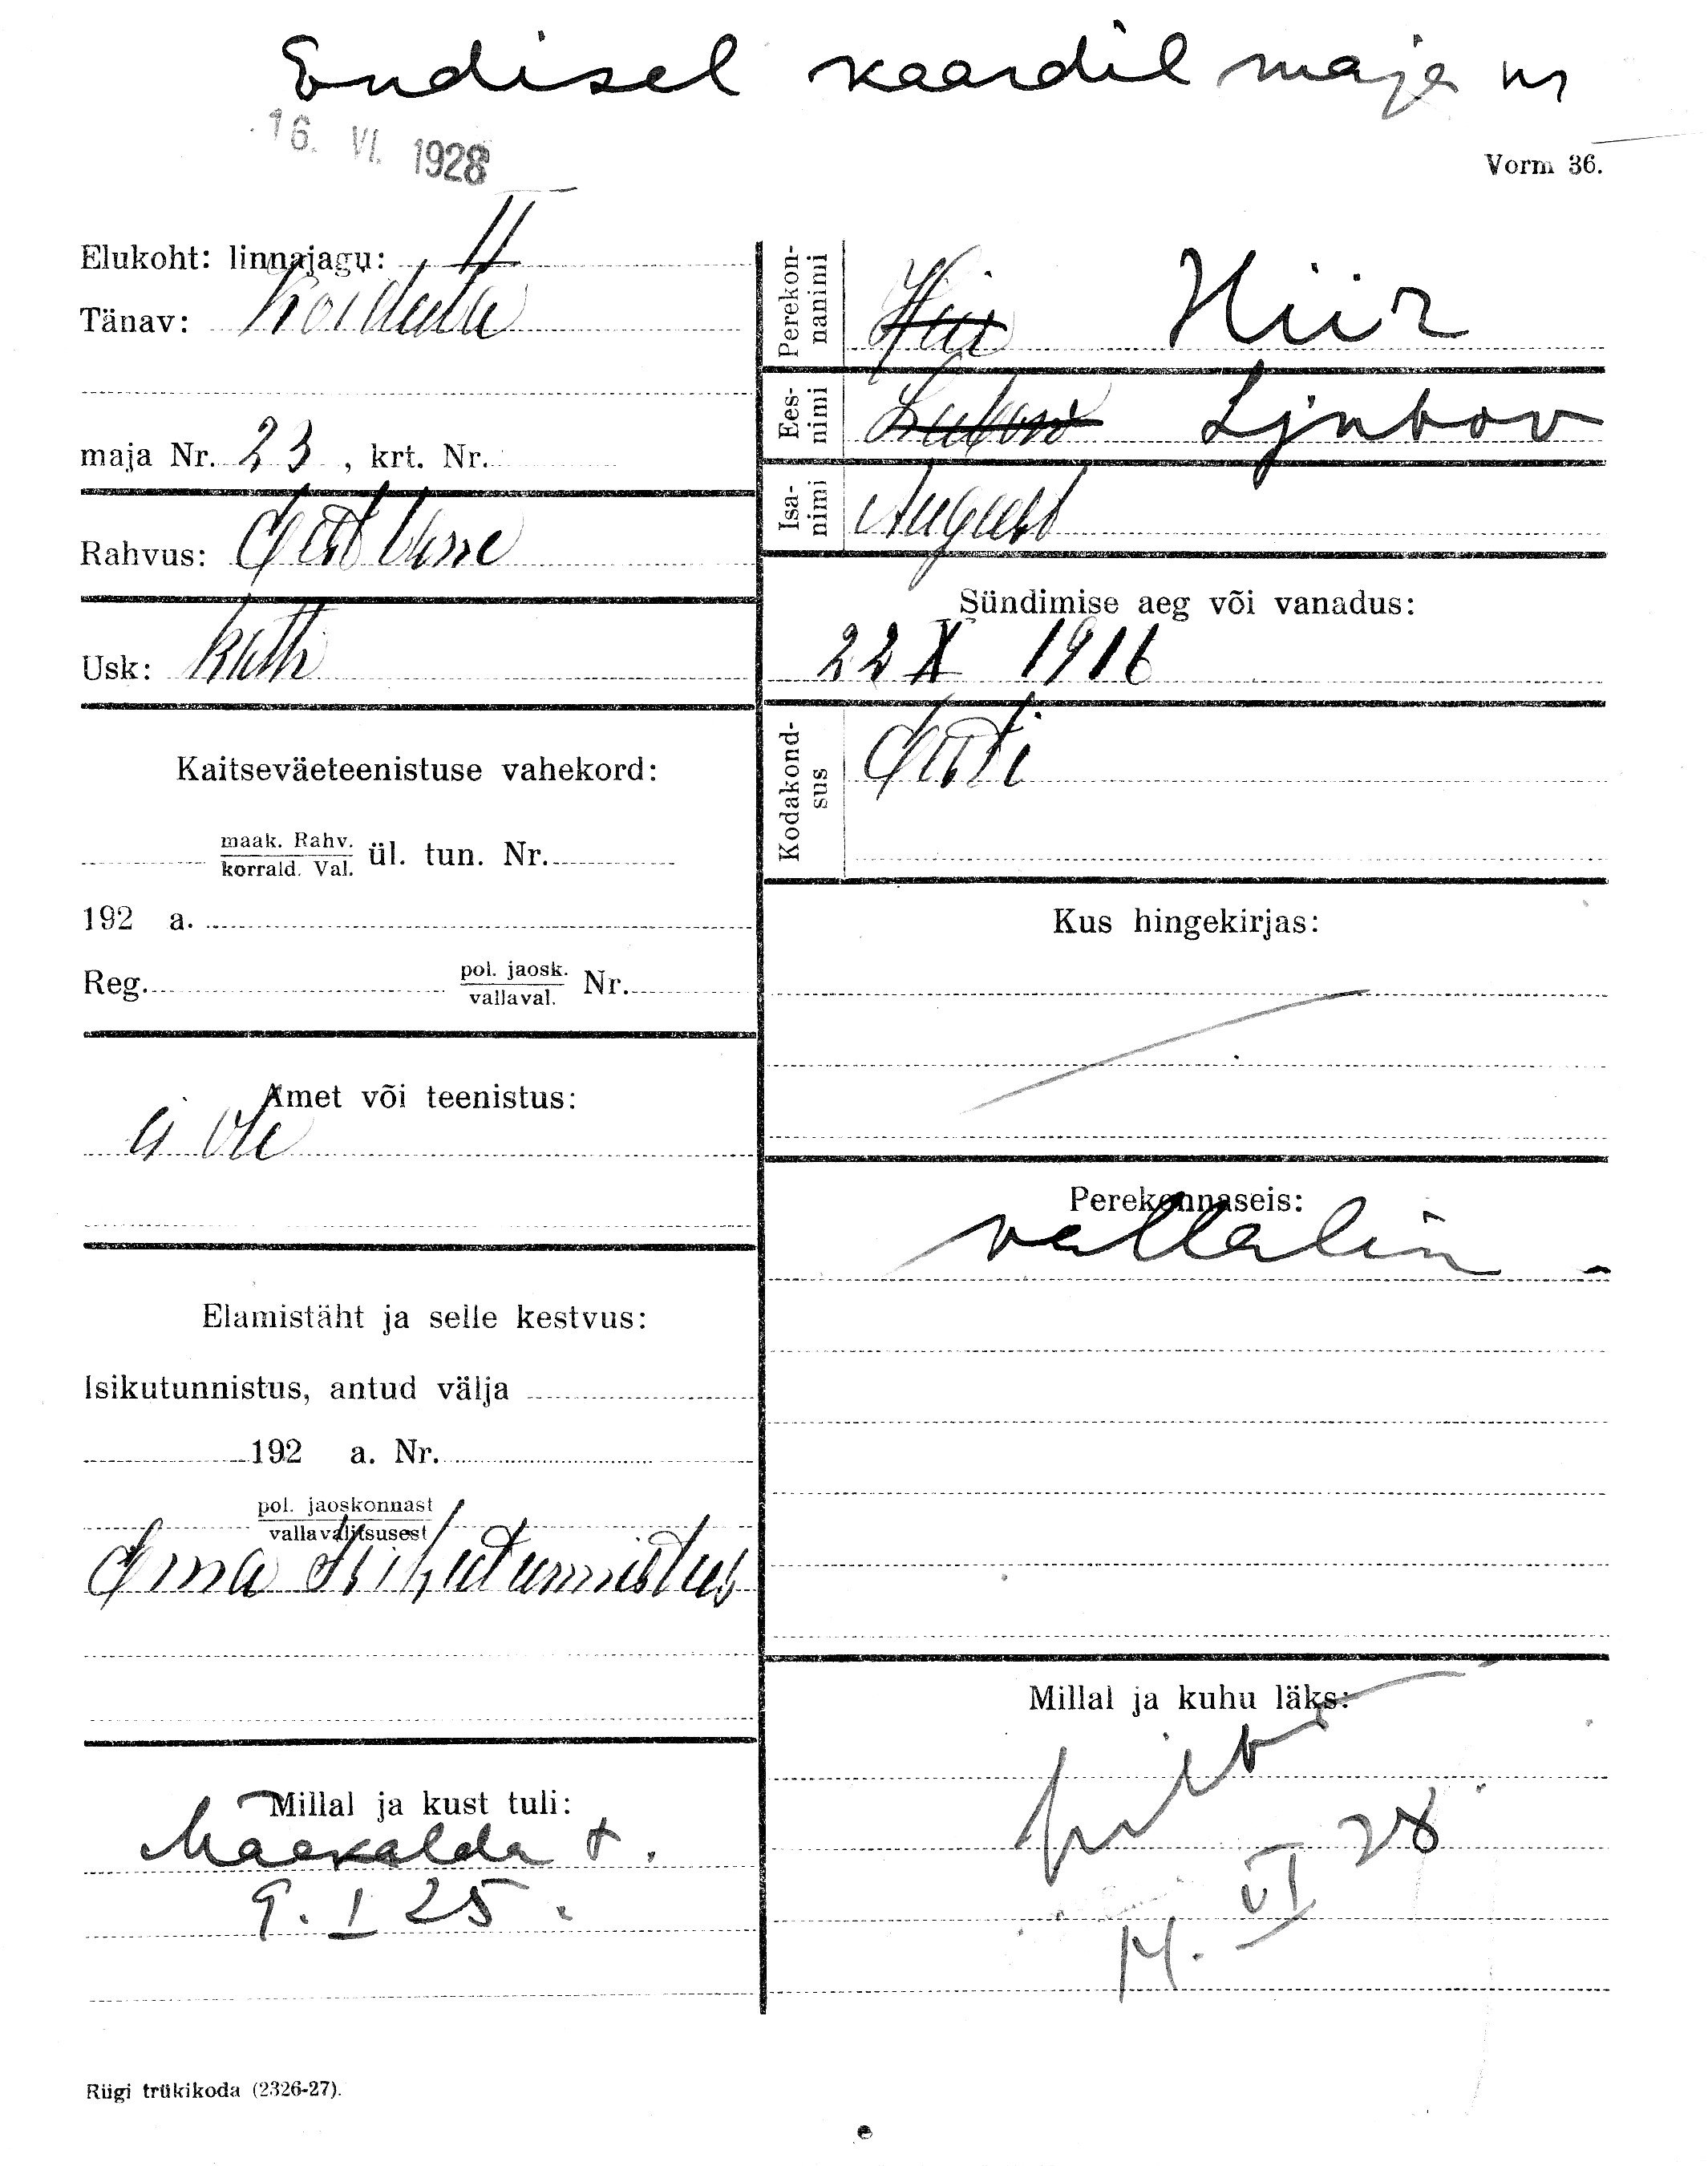 Endisel kaardil maja nr
16. VI. 1928
Vorm 36.
Elukoht: linnajagu: II
Tänav: Koidula
maja Nr. 23, krt. Nr.
Rahvus: Eestlane
Usk: luth
Kaitseväeteenistuse vahekord:
maak. Rahv.
korrald. Val. ül. tun. Nr.
192 a.
Reg. pol. jaosk.
vallaval. Nr.
Amet või teenistus:
ei ole
Elamistäht ja selle kestvus:
Isikutunnistus, antud välja
192 a. Nr.
pol. jaoskonnast
vallavalitsusest
Ema Isikutunnistus
Millal ja kust tuli:
Maekalda t.
9. I 25.
Perekon-
nanimi
Hiir Hiir
Ees-
nimi
Ljubov
Isa-
nimi
August
Sündimise aeg või vanadus:
22 X 1916
Kodakond-
sus
Eesti
Kus hingekirjas:
Perekonnaseis:
vallalin
Millal ja kuhu läks:
14. VI 28
Riigi trükikoda (2326-27).